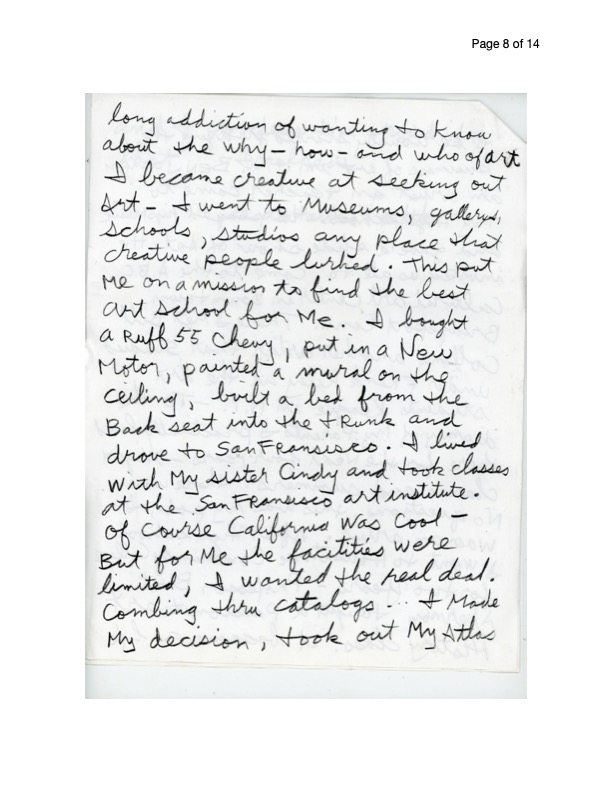 Page 8 of 14
long addiction of wanting to know
about the why - how - and who of art
I became creative at seeking out
art - I went to Museums, gallerys,
schools, studios any place that
creative people lurked. This put
me on a mission to find the best
art school for Me. I bought
a Ruff 55 Chevy, put in a New
Motor, painted a mural on the
ceiling, built a bed from the
Back seat into the trunk and
drove to SanFransisco. I lived
with My sister Cindy and took classes
at the SanFransisco art institute.
of course California was cool -
But for Me the facitities were
limited, I wanted the real deal.
Combing thru catalogs ... I Made
My decision, took out My Atlas